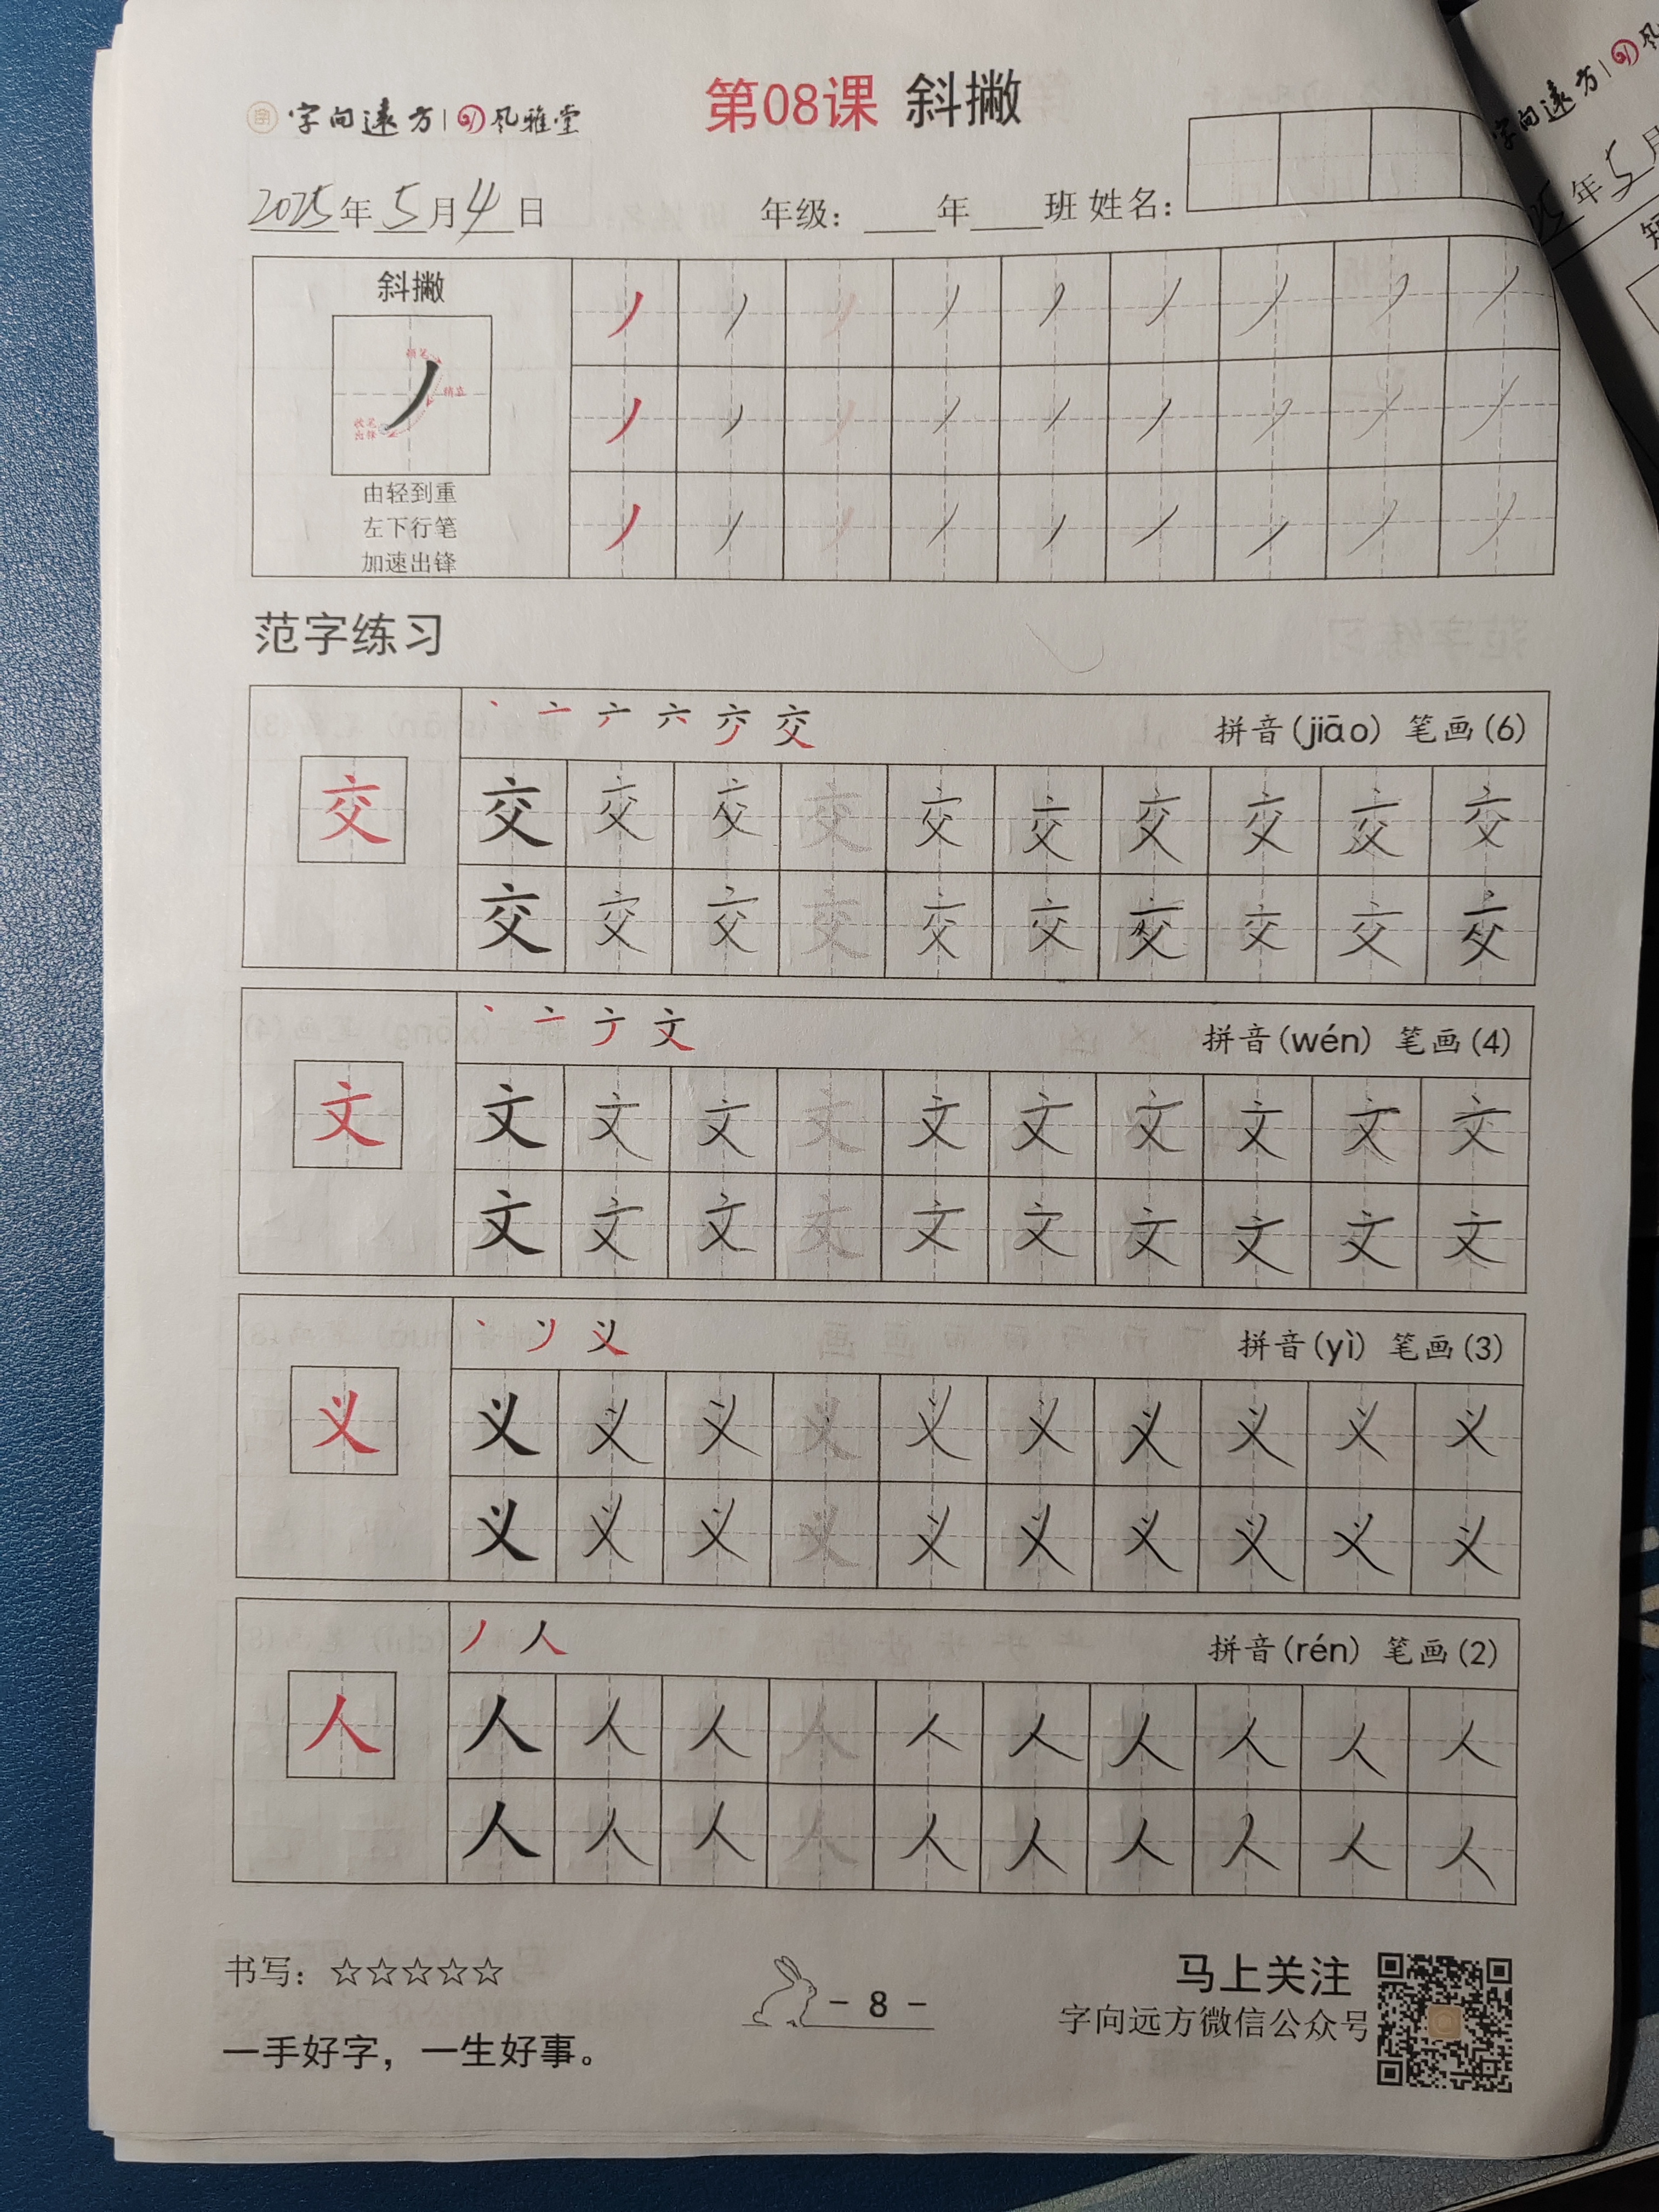 字向遠方 | 风雅堂
第08课 斜撇
2025年5月4日 年级：____年____班 姓名：
斜撇
顿笔
稍直
收笔
出锋
由轻到重
左下行笔
加速出锋
范字练习
拼音(jiāo) 笔画(6)
交 交 交 交 交 交 交 交 交 交 交
交 交 交 交 交 交 交 交 交 交
拼音(wén) 笔画(4)
文 文 文 文 文 文 文 文 文 文 文
文 文 文 文 文 文 文 文 文 文
拼音(yì) 笔画(3)
义 义 义 义 义 义 义 义 义 义 义
义 义 义 义 义 义 义 义 义 义
拼音(rén) 笔画(2)
人 人 人 人 人 人 人 人 人 人 人
人 人 人 人 人 人 人 人 人 人
书写：☆☆☆☆☆
一手好字，一生好事。
- 8 -
马上关注
字向远方微信公众号
字向遠方 | 风
年5月